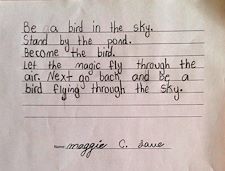 Be a bird in the sky.
Stand by the pond.
Become the bird.
Let the magic fly through the
air. Next go back and be a
bird flying through the sky.
Name maggie C. Jane